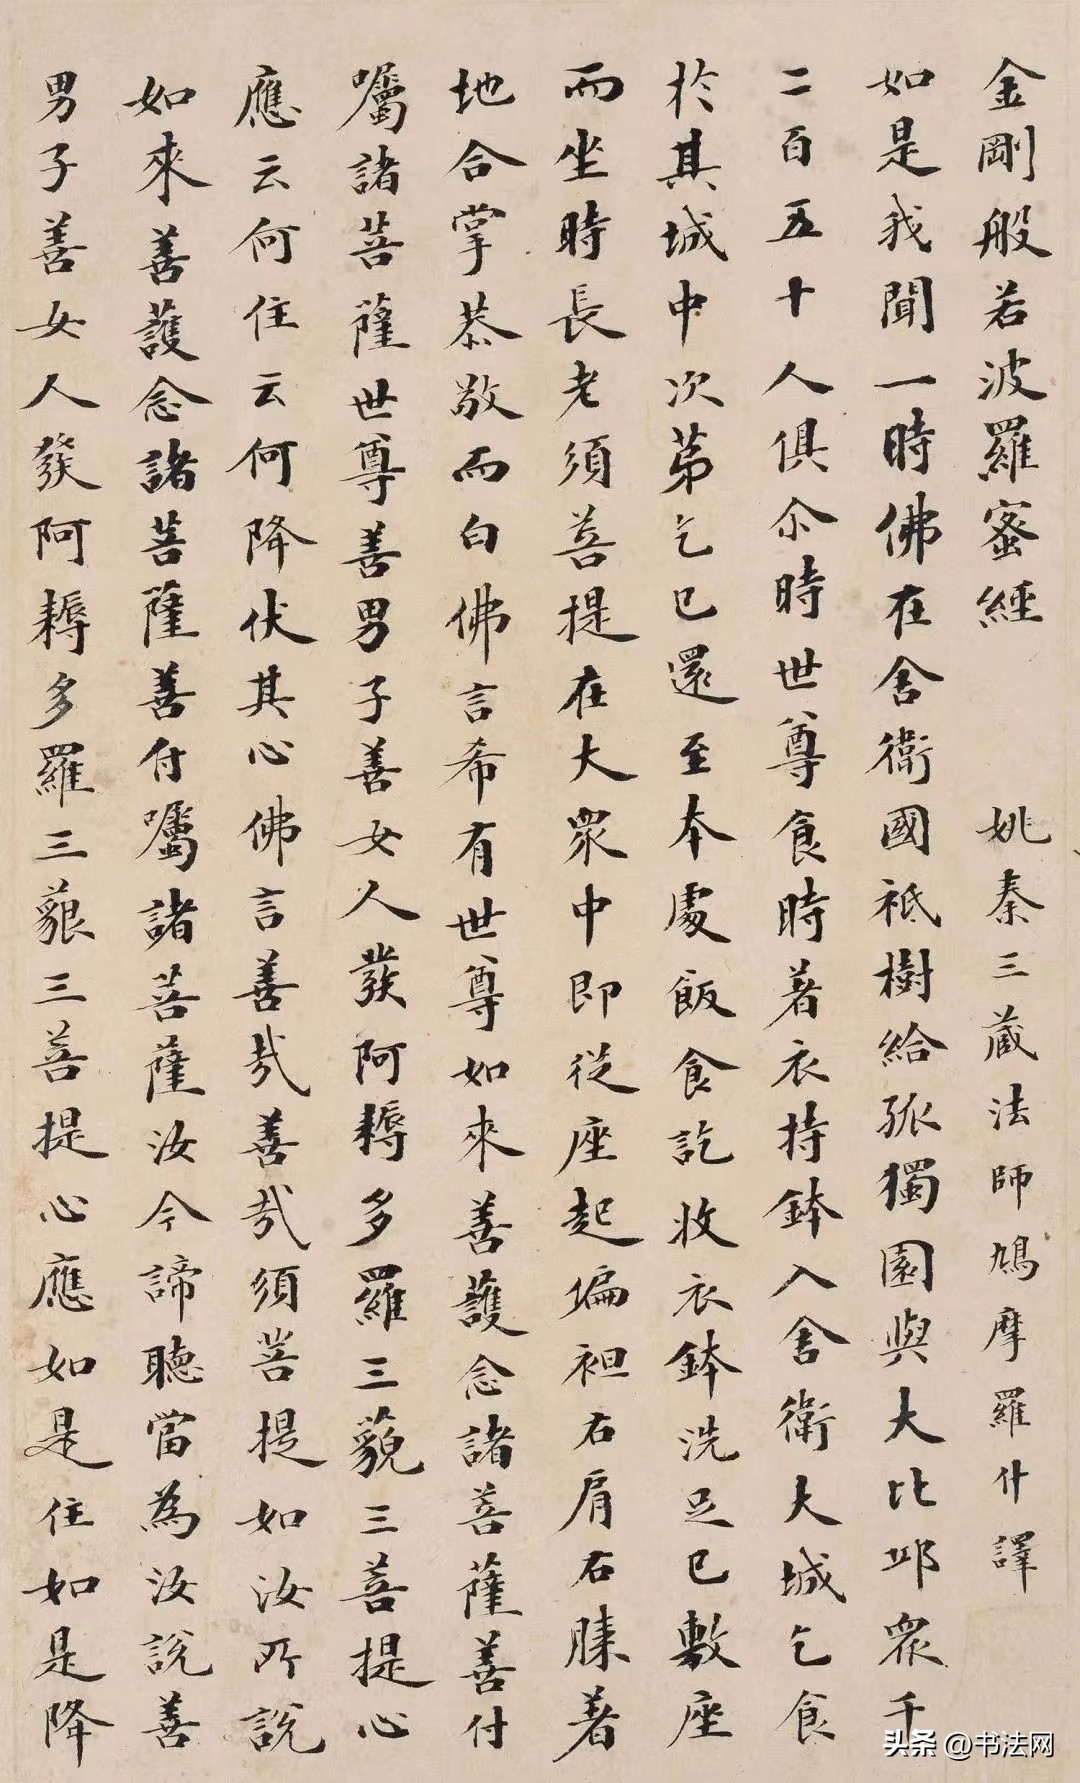 金剛般若波羅蜜經 姚秦三藏法師鳩摩羅什譯
如是我聞一時佛在舍衛國祇樹給孤獨園與大比邱衆千
二百五十人俱尒時世尊食時著衣持鉢入舍衛大城乞食
於其城中次苐乞已還至本處飯食訖收衣鉢洗足已敷座
而坐時長老須菩提在大衆中即從座起偏袒右肩右膝著
地合掌恭敬而白佛言希有世尊如來善護念諸菩薩善付
囑諸菩薩世尊善男子善女人發阿耨多羅三藐三菩提心
應云何住云何降伏其心佛言善哉善哉須菩提如汝所說
如來善護念諸菩薩善付囑諸菩薩汝今諦聽當為汝說善
男子善女人發阿耨多羅三藐三菩提心應如是住如是降
头条 @书法网